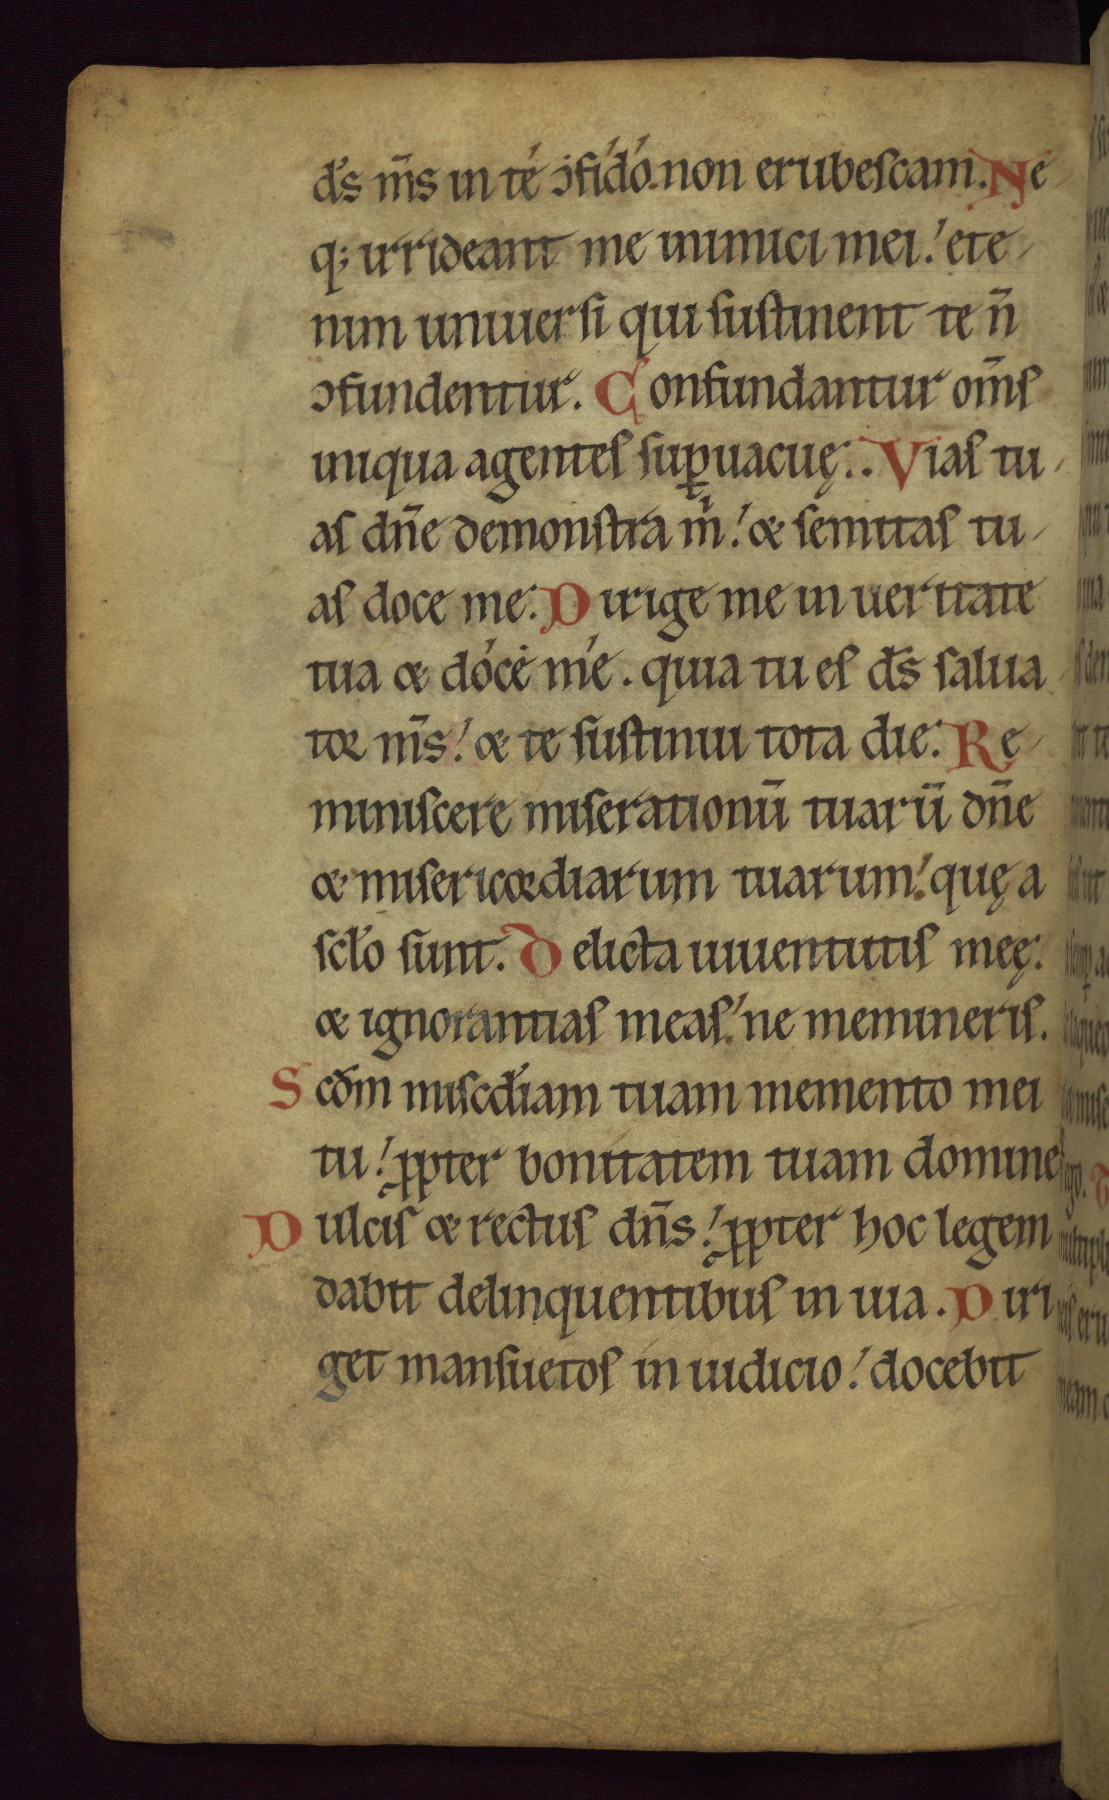 d̄s m̄s in té ɔfídó. non erubeſcam. Ne
q; irrideant me inimici mei: ete
nim uniuerſi qui ſuſtinent te n̄
ɔfundentur. Confundantur om̄ſ
iniqua agenteſ ſuꝑuacuę. Viaſ tu
aſ dn̄e demonſtra m̄: & ſemitaſ tu
aſ doce me. Dirige me in ueritate
tua & dócé mé. quia tu eſ d̄s ſalua
toꝛ m̄s: & te ſuſtinui tota die. Re
miniſcere miſerationū tuarū dn̄e
& miſericoꝛdiarum tuarum: quę a
ſcło ſunt. Delicta iuuentutiſ meę.
& ignorantiaſ meaſ: ne memineriſ.
Scd̄m miſcđiam tuam memento mei
tu: ꝓpter bonitatem tuam domine
Dulciſ & rectuſ dn̄s: ꝓpter hoc legem
dabit delinquentibuſ in uia. Diri
get manſuetoſ in iudicio: docebit